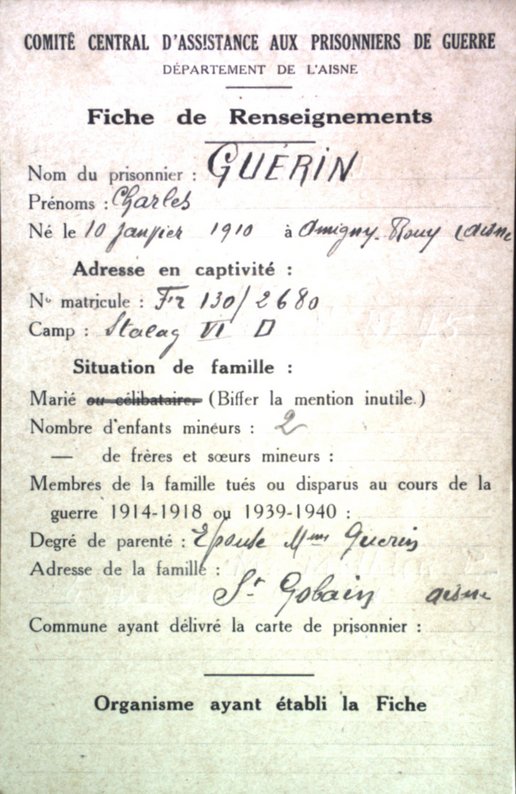 COMITÉ CENTRAL D'ASSISTANCE AUX PRISONNIERS DE GUERRE
DÉPARTEMENT DE L'AISNE
Fiche de Renseignements
Nom du prisonnier : GUÉRIN
Prénoms : Charles
Né le 10 janvier 1910 à Amigny-Rouy (aisne
Adresse en captivité :
N° matricule : Fr 130/2680
Camp : Stalag VI D
Situation de famille :
Marié ou célibataire. (Biffer la mention inutile.)
Nombre d'enfants mineurs : 2
— de frères et sœurs mineurs :
Membres de la famille tués ou disparus au cours de la
guerre 1914-1918 ou 1939-1940 :
Degré de parenté : Epouse Mme Guerin
Adresse de la famille :
St Gobain aisne
Commune ayant délivré la carte de prisonnier :
Organisme ayant établi la Fiche